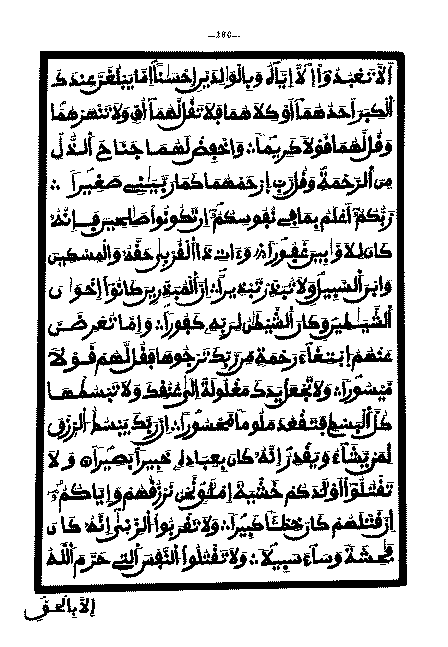 أَلَّا تَعْبُدُوٓا۟ إِلَّآ إِيَّاهُ وَبِالْوَٰلِدَيْنِ إِحْسَٰنًا إِمَّا يَبْلُغَنَّ عِندَكَ
اَلْكِبَرَ أَحَدُهُمَآ أَوْ كِلَاهُمَا فَلَا تَقُل لَّهُمَآ أُفٍّ وَلَا تَنْهَرْهُمَا
وَقُل لَّهُمَا قَوْلًا كَرِيمًا وَاخْفِضْ لَهُمَا جَنَاحَ اَلذُّلِّ
مِنَ اَلرَّحْمَةِ وَقُل رَّبِّ اِرْحَمْهُمَا كَمَا رَبَّيَٰنِي صَغِيرًا
رَّبُّكُمْ أَعْلَمُ بِمَا فِي نُفُوسِكُمْ إِن تَكُونُوا۟ صَٰلِحِينَ فَإِنَّهُۥ
كَانَ لِلْأَوَّٰبِينَ غَفُورًا وَءَاتِ ذَا اَلْقُرْبَىٰ حَقَّهُۥ وَالْمِسْكِينَ
وَابْنَ اَلسَّبِيلِ وَلَا تُبَذِّرْ تَبْذِيرًا إِنَّ اَلْمُبَذِّرِينَ كَانُوٓا۟ إِخْوَٰنَ
اَلشَّيَٰطِينِ وَكَانَ اَلشَّيْطَٰنُ لِرَبِّهِۦ كَفُورًا وَإِمَّا تُعْرِضَنَّ
عَنْهُمُ اُبْتِغَآءَ رَحْمَةٍ مِّن رَّبِّكَ تَرْجُوهَا فَقُل لَّهُمْ قَوْلًا
مَّيْسُورًا وَلَا تَجْعَلْ يَدَكَ مَغْلُولَةً إِلَىٰ عُنُقِكَ وَلَا تَبْسُطْهَا
كُلَّ اَلْبَسْطِ فَتَقْعُدَ مَلُومًا مَّحْسُورًا إِنَّ رَبَّكَ يَبْسُطُ اُلرِّزْقَ
لِمَنْ يَّشَآءُ وَيَقْدِرُ إِنَّهُۥ كَانَ بِعِبَادِهِۦ خَبِيرًۢا بَصِيرًا وَلَا
تَقْتُلُوٓا۟ أَوْلَٰدَكُمْ خَشْيَةَ إِمْلَٰقٍ نَّحْنُ نَرْزُقُهُمْ وَإِيَّاكُمُۥٓ
إِنَّ قَتْلَهُمْ كَانَ خِطْـًٔا كَبِيرًا وَلَا تَقْرَبُوا۟ اُلزِّنَىٰٓ إِنَّهُۥ كَانَ
فَٰحِشَةً وَسَآءَ سَبِيلًا وَلَا تَقْتُلُوا۟ اُلنَّفْسَ اَلَّتِي حَرَّمَ اَللَّهُ
إِلَّا بِالْحَقِّ